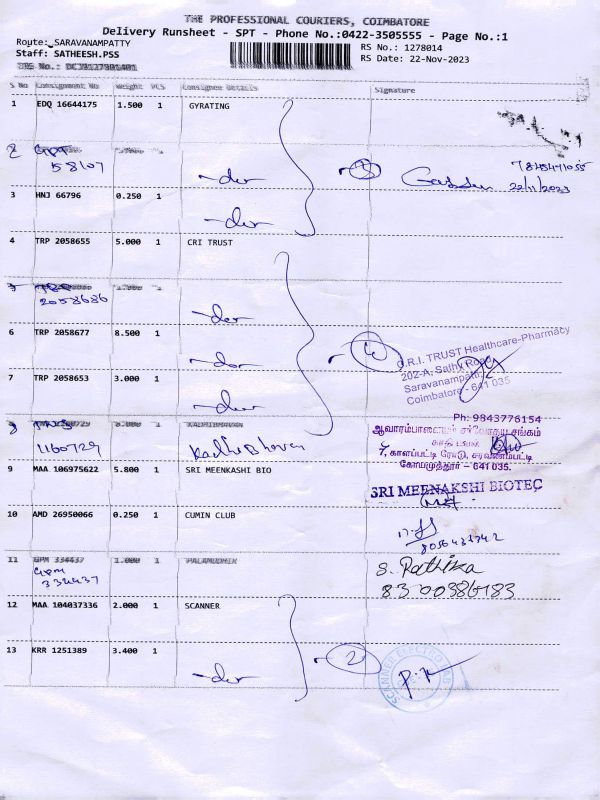 THE PROFESSIONAL COURIERS, COIMBATORE
Delivery Runsheet - SPT - Phone No.:0422-3505555 - Page No.:1
Route: SARAVANAMPATTY
RS No.: 1278014
Staff: SATHEESH.PSS
RS Date: 22-Nov-2023
S No Consignment No Weight PCS Consignee Details Signature
1 EDQ 16644175 1.500 1 GYRATING
2
58107
-do-
3
7845471055
22/11/2023
3 HNJ 66796 0.250 1
-do-
4 TRP 2058655 5.000 1 CRI TRUST
5
2058686
-do-
6 TRP 2058677 8.500 1
-do-
4
C.R.I. TRUST Healthcare-Pharmacy
202-A, Sathy Road,
Saravanampatti
Coimbatore - 641 035
7 TRP 2058653 3.000 1
-do-
Ph: 9843776154
8 KADHIBHAVAN
1160729
Kadhi Bhavan
ஆவாரம்பாளையம் சர்வோதய சங்கம்
காதி பவன்
7, காளப்பட்டி ரோடு, சரவணம்பட்டி
கோயமுத்தூர் – 641 035.
9 MAA 106975622 5.800 1 SRI MEENKASHI BIO
SRI MEENAKSHI BIOTEC
10 AMD 26950066 0.250 1 CUMIN CLUB
11 GPM 334437 1.000 1 PALAMUDHIR
GPM
334437
S. Rathika
12 MAA 104037336 2.000 1 SCANNER
13 KRR 1251389 3.400 1
-do-
2
SCANNER ELECTRO LAB
P.K